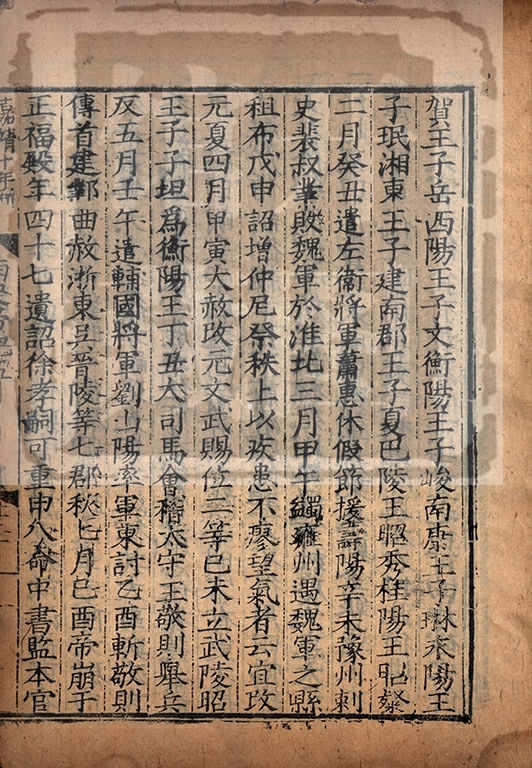 賀王子岳西陽王子文衡陽王子峻南康王子琳永陽王
子珉湘東王子建南郡王子夏巴陵王昭秀桂陽王昭粲
二月癸丑遣左衛將軍蕭惠休假節援壽陽辛未豫州刺
史裴叔業敗魏軍於淮北三月甲午蠲雍州遇魏軍之縣
租布戊申詔增仲尼祭秩上以疾患不廖望氣者云宜改
元夏四月甲寅大赦改元文武賜位二等己未立武陵昭
王子子坦爲衡陽王丁丑大司馬會稽太守王敬則舉兵
反五月壬午遣輔國將軍劉山陽率軍東討乙酉斬敬則
傳首建鄴曲赦浙東吳晉陵等七郡秋七月己酉帝崩于
正福殿年四十七遺詔徐孝嗣可重申八命中書監本官
嘉靖十年刊